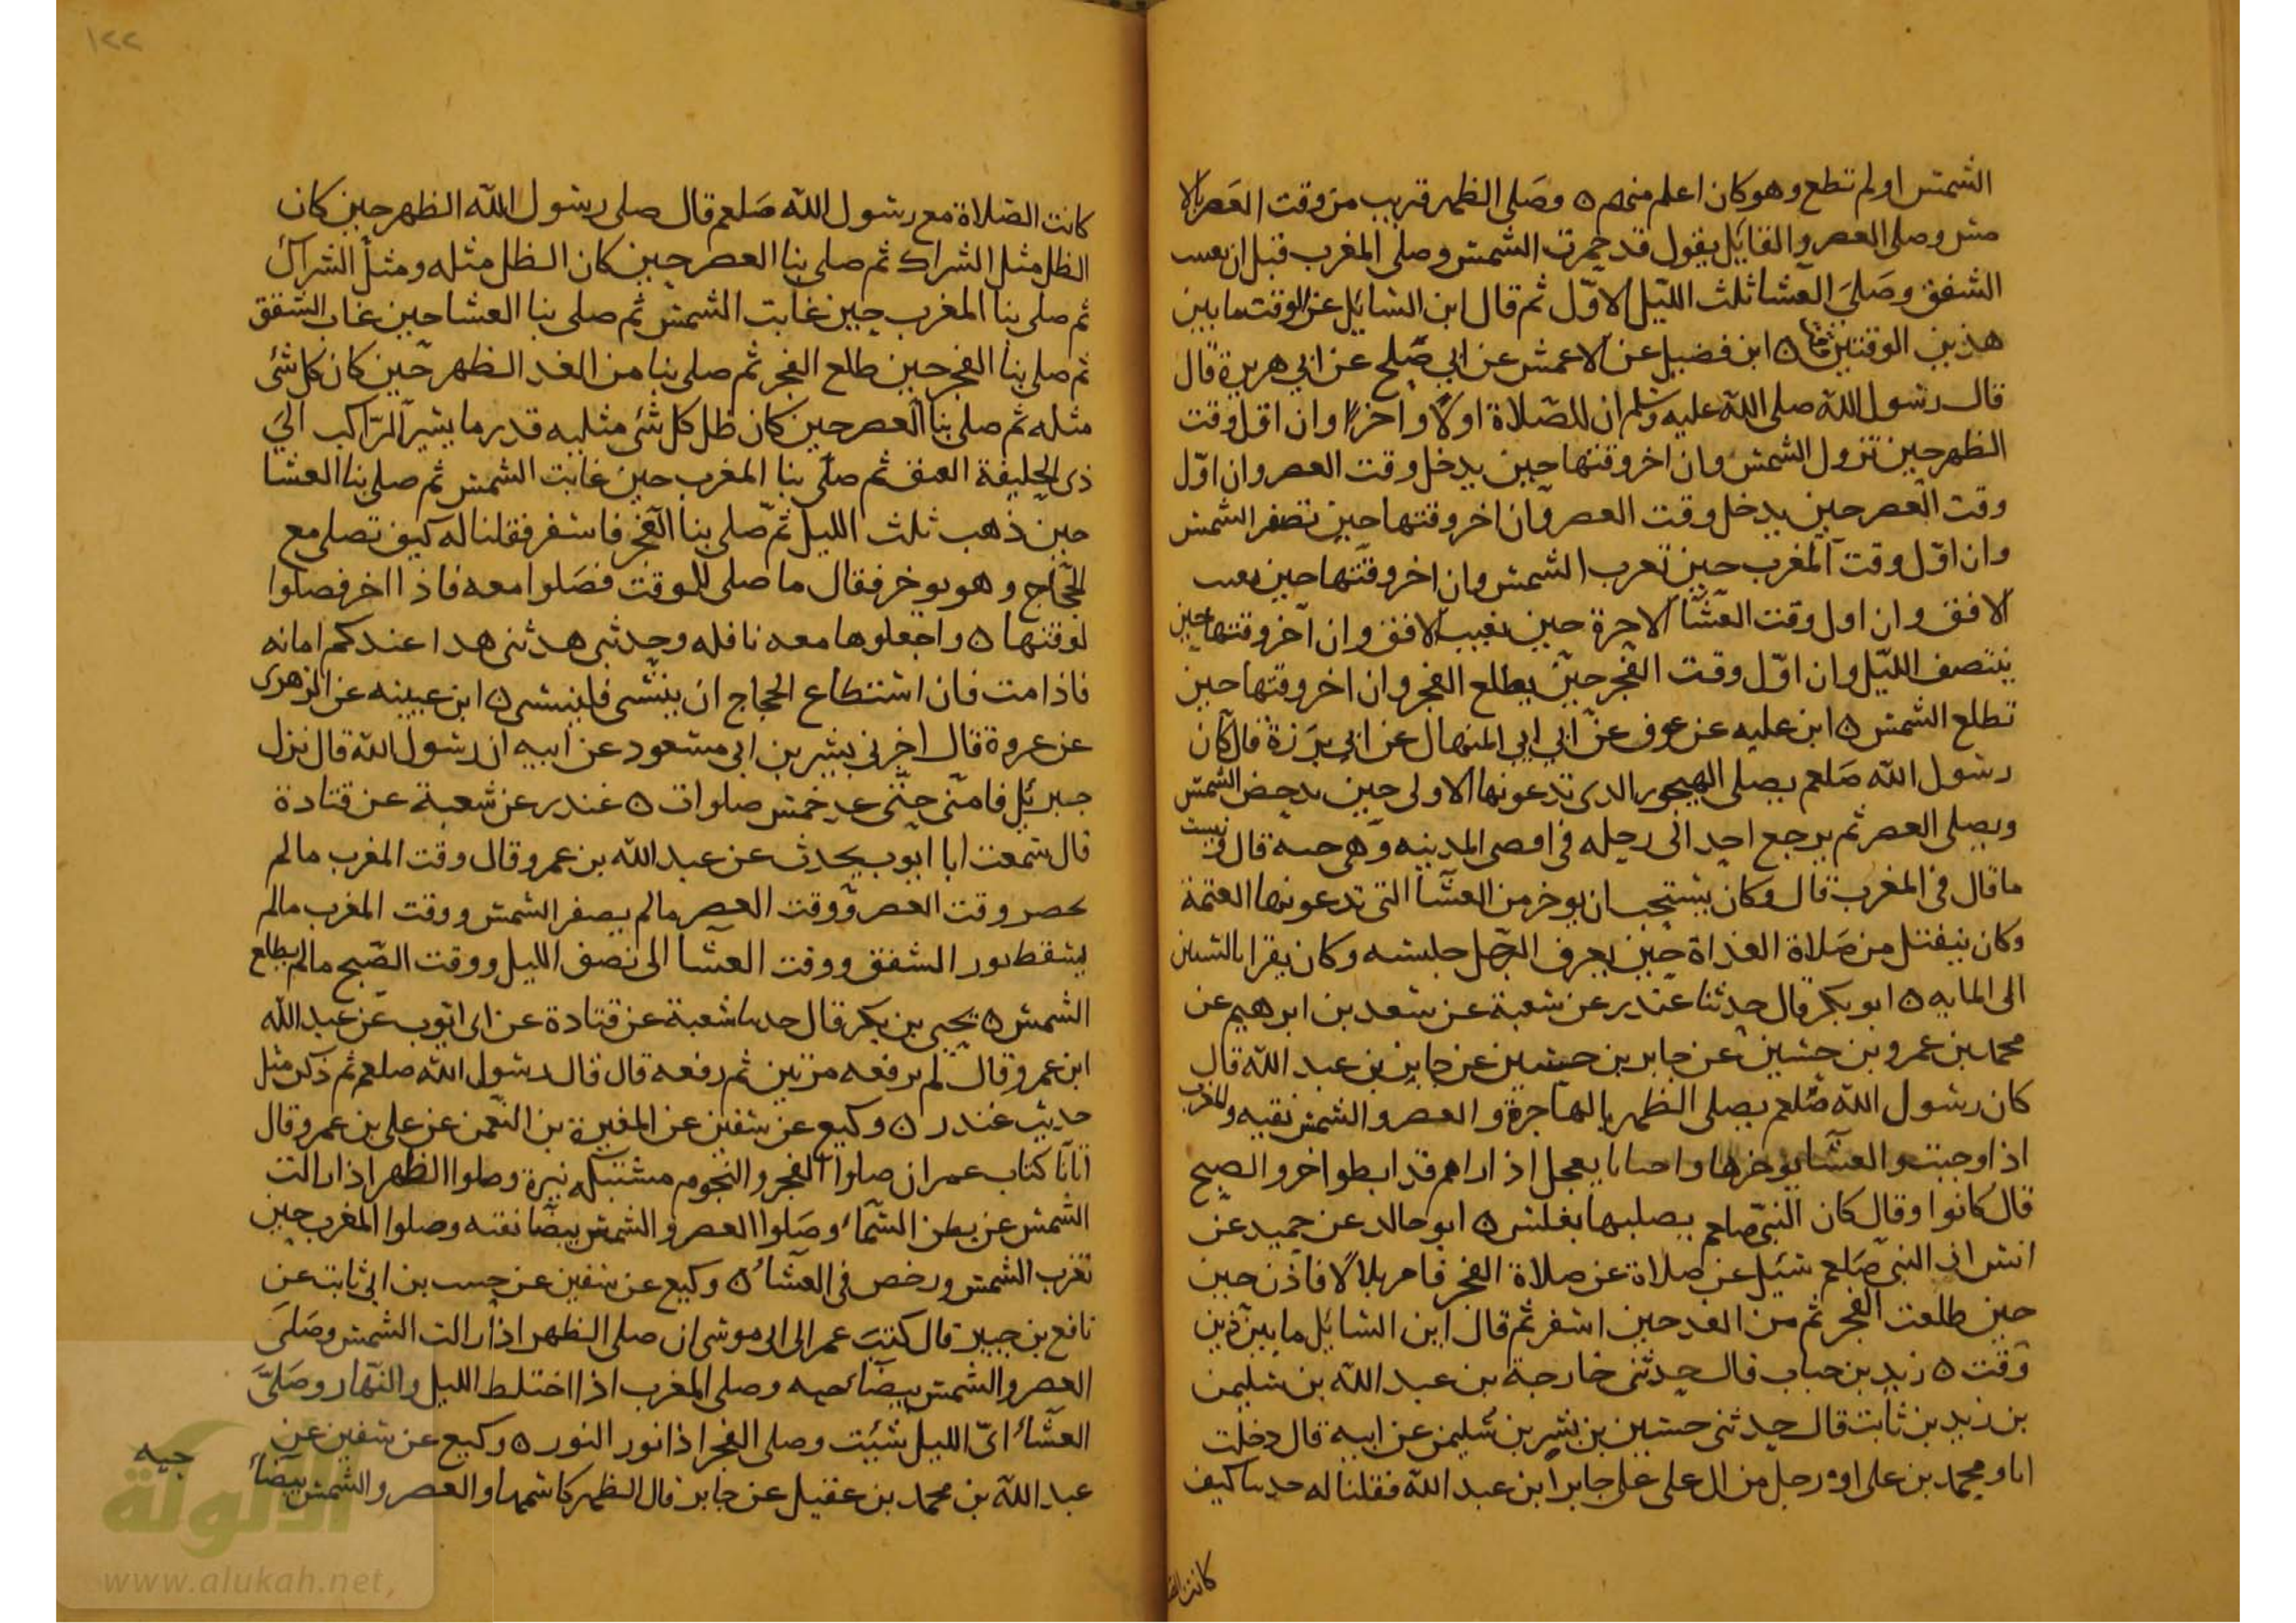 الشمس او لم تطع وهو كان اعلم منهم ٥ وصلى الظهر قريب من وقت العصر بالا
مس وصلى العصر والقايل يقول قد حمرت الشمس وصلى المغرب قبل ان يغيب
الشفق وصلى العشا ثلث الليل الاول ثم قال اين السايل عن الوقت ما بين
هذين الوقتين ٥ ابن فضيل عن الاعمش عن ابي صلح عن ابي هريرة قال
قال رسول الله صلى الله عليه وسلم ان للصلاة اولا واخرا وان اول وقت
الظهر حين تزول الشمس وان اخر وقتها حين يدخل وقت العصر وان اول
وقت العصر حين يدخل وقت العصر وان اخر وقتها حين تصفر الشمس
وان اول وقت المغرب حين تغرب الشمس وان اخر وقتها حين يغيب
الافق وان اول وقت العشا الاخرة حين يغيب الافق وان آخر وقتها حين
ينتصف الليل وان اول وقت الفجر حين يطلع الفجر وان اخر وقتها حين
تطلع الشمس ٥ ابن عليه عن عوف عن ابي ابي المنهال عن ابي برزة قال كان
رسول الله صلعم يصلي الهجير الذي تدعونها الاولى حين تدحض الشمس
ويصلي العصر ثم يرجع احد الى رحله في اقصى المدينه وهي حيه قال ونسيت
ما قال في المغرب قال وكان يستحب ان يوخر من العشا التي تدعونها العتمة
وكان ينفتل من صلاة الغداة حين يعرف الرجل جليسه وكان يقرا بالستين
الى المايه ٥ ابو بكر قال حدثنا غندر عن شعبة عن سعد بن ابرهيم عن
محمد بن عمرو بن حسين عن جابر بن حسين عن جابر بن عبد الله قال
كان رسول الله صلعم يصلي الظهر بالهاجرة والعصر والشمس نقيه والمغرب
اذا وجبت والعشا يوخرها واحيانا يعجل اذا راهم قد ابطوا اخر والصبح
قال كانوا وقال كان النبي صلعم يصليها بغلس ٥ ابو خالد عن حميد عن
انس ان النبي صلعم سئل عن صلاة عن صلاة الفجر فامر بلالا فاذن حين
حين طلعت الفجر ثم من الغد حين اسفر ثم قال اين السائل ما بين ذين
وقت ٥ زيد بن حباب قال حدثني خارجة بن عبد الله بن سليمن
بن زيد بن ثابت قال حدثني حسين بن بشر بن سليمن عن ابيه قال دخلت
انا ومحمد بن على او ورجل من ال على على جابر ابن عبد الله فقلنا له حدثنا كيف
كانت الصلاة
١٢٢
كانت الصلاة مع رسول الله صلعم قال صلى رسول الله الظهر حين كان
الظل مثل الشراك ثم صلى بنا العصر حين كان الظل مثله ومثل الشراك
ثم صلى بنا المغرب حين غابت الشمس ثم صلى بنا العشا حين غاب الشفق
ثم صلى بنا الفجر حين طلع الفجر ثم صلى بنا من الغد الظهر حين كان كل شئ
مثله ثم صلى بنا العصر حين كان ظل كل شئ مثليه قدر ما يسير الراكب الى
ذي الحليفة العنق ثم صلى بنا المغرب حين غابت الشمس ثم صلى بنا العشا
حين ذهب ثلث الليل ثم صلى بنا الفجر فاسفر فقلنا له كيف تصلى مع
الحجاج وهو يوخر فقال ما صلى للوقت فصلوا معه فاذا اخر فصلوا
لوقتها ٥ واجعلوها معه نافله وحديثي هدثني هدا عندكم امانه
فاذا مت فان استطاع الحجاج ان ينبشى فلينبشى ٥ ابن عيينه عن الزهرى
عن عروة قال اخبرني بشير بن ابي مسعود عن ابيه ان رسول الله قال نزل
جبريل فامني حتى عد خمس صلوات ٥ غندر عن شعبة عن قتادة
قال سمعت ابا ايوب يحدث عن عبد الله بن عمرو قال وقت المغرب ما لم
يحضر وقت العصر ووقت العصر ما لم يصفر الشمس ووقت المغرب ما لم
يسقط نور الشفق ووقت العشا الى نصف الليل ووقت الصبح ما لم يطلع
الشمس ٥ يحيى بن بكر قال حدثنا شعبة عن قتادة عن ابي ايوب عن عبد الله
ابن عمرو قال لم يرفعه مرتين ثم رفعه قال قال رسول الله صلعم ثم ذكر مثل
حديث غندر ٥ وكيع عن سفين عن المغيرة بن النعمن عن علي بن عمرو قال
اتانا كتاب عمر ان صلوا الفجر والنجوم مشتبكه نيرة وصلوا الظهر اذا زالت
الشمس عن بطن السماء وصلوا العصر والشمس بيضا نقيه وصلوا المغرب حين
تغرب الشمس ورخص في العشاء ٥ وكيع عن سفين عن حبيب بن ابي ثابت عن
نافع بن جبير قال كتب عمر الى ابي موسى ان صلى الظهر اذا زالت الشمس وصلى
العصر والشمس بيضاء حيه وصلى المغرب اذا اختلط الليل والنهار وصلى
العشاء اى الليل شئت وصلى الفجر اذا نور النور ٥ وكيع عن سفين عن
عبد الله بن محمد بن عقيل عن جابر قال الظهر كاسمها والعصر والشمس بيضاء
حيه
الألوكة
www.alukah.net